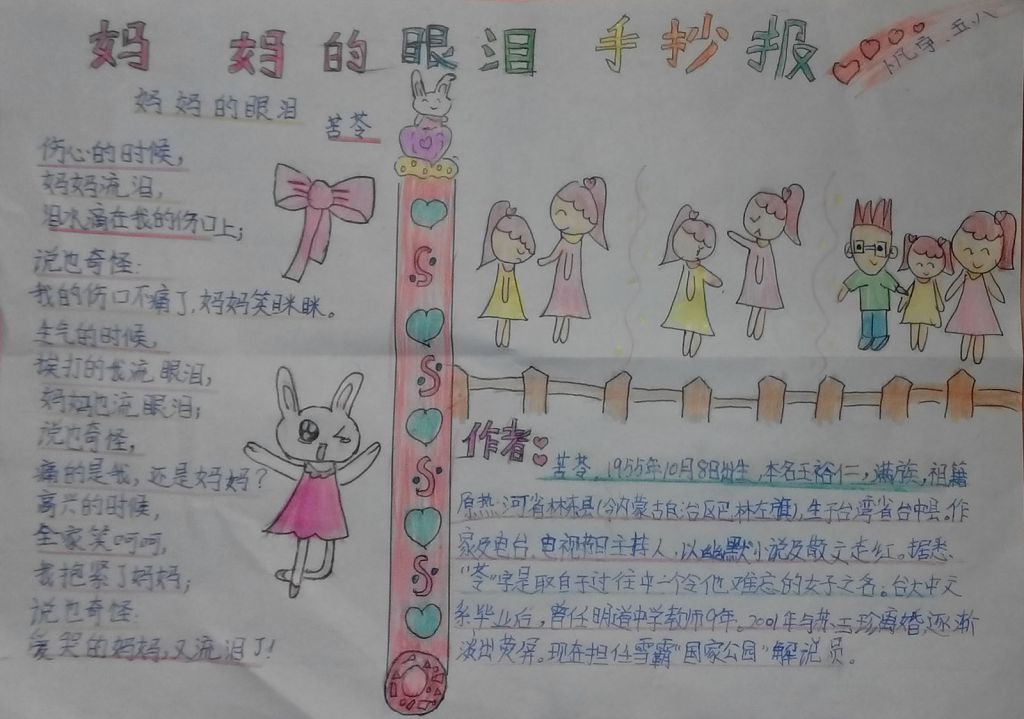 妈妈的眼泪 手抄报
五、八
妈妈的眼泪
苦苓
伤心的时候，
妈妈流泪，
泪水滴在我的伤口上；
说也奇怪：
我的伤口不痛了，妈妈笑眯眯。
生气的时候，
挨打的我流眼泪，
妈妈也流眼泪；
说也奇怪，
痛的是我，还是妈妈？
高兴的时候，
全家笑呵呵，
我抱紧了妈妈；
说也奇怪：
爱哭的妈妈，又流泪了！
作者：
苦苓，1955年10月8日出生，本名王裕仁，满族，祖籍
原热河省林东县(今内蒙古自治区巴林左旗)，生于台湾省台中县。作
家及电台、电视节目主持人，以幽默小说及散文走红。据悉、
“苓”字是取自于过往中一个令他难忘的女子之名。台大中文
系毕业后，曾任明道中学教师9年。2001年与苏玉珍离婚，逐渐
淡出荧屏。现在担任雪霸“国家公园”解说员。